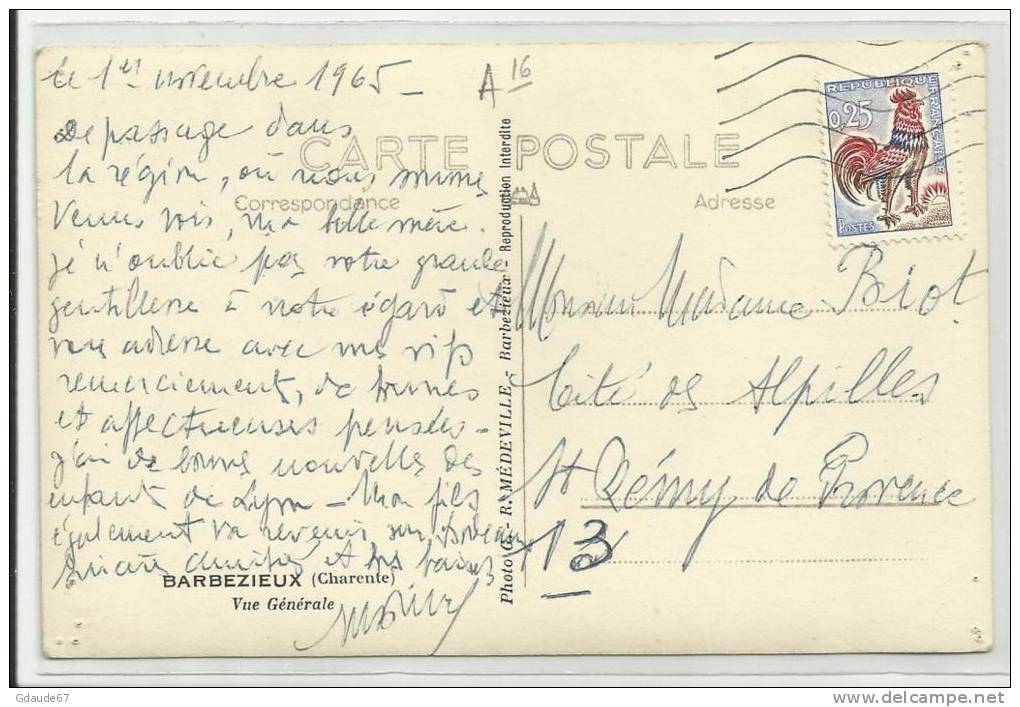 Le 1er novembre 1965 -
A 16
De passage dans
la région, où nous sommes
venus voir, ma belle mère.
je n'oublie pas votre grande
gentillesse à notre égard et
vous adresse avec mes vifs
remerciements, de bonnes
et affectueuses pensées -
j'ai de bonnes nouvelles des
enfants de Lyon - Mon fils
également va revenir sur Bordeaux
amitiés et bons baisers
CARTE POSTALE
Correspondance
Adresse
REPUBLIQUE FRANÇAISE
0,25
POSTES
Monsieur Madame Biot
Cité des Alpilles
St Rémy de Provence
13
Photo G. - R. MÉDEVILLE - Barbezieux - Reproduction Interdite
BARBEZIEUX (Charente)
Vue Générale
Gdaude67
www.delcampe.net